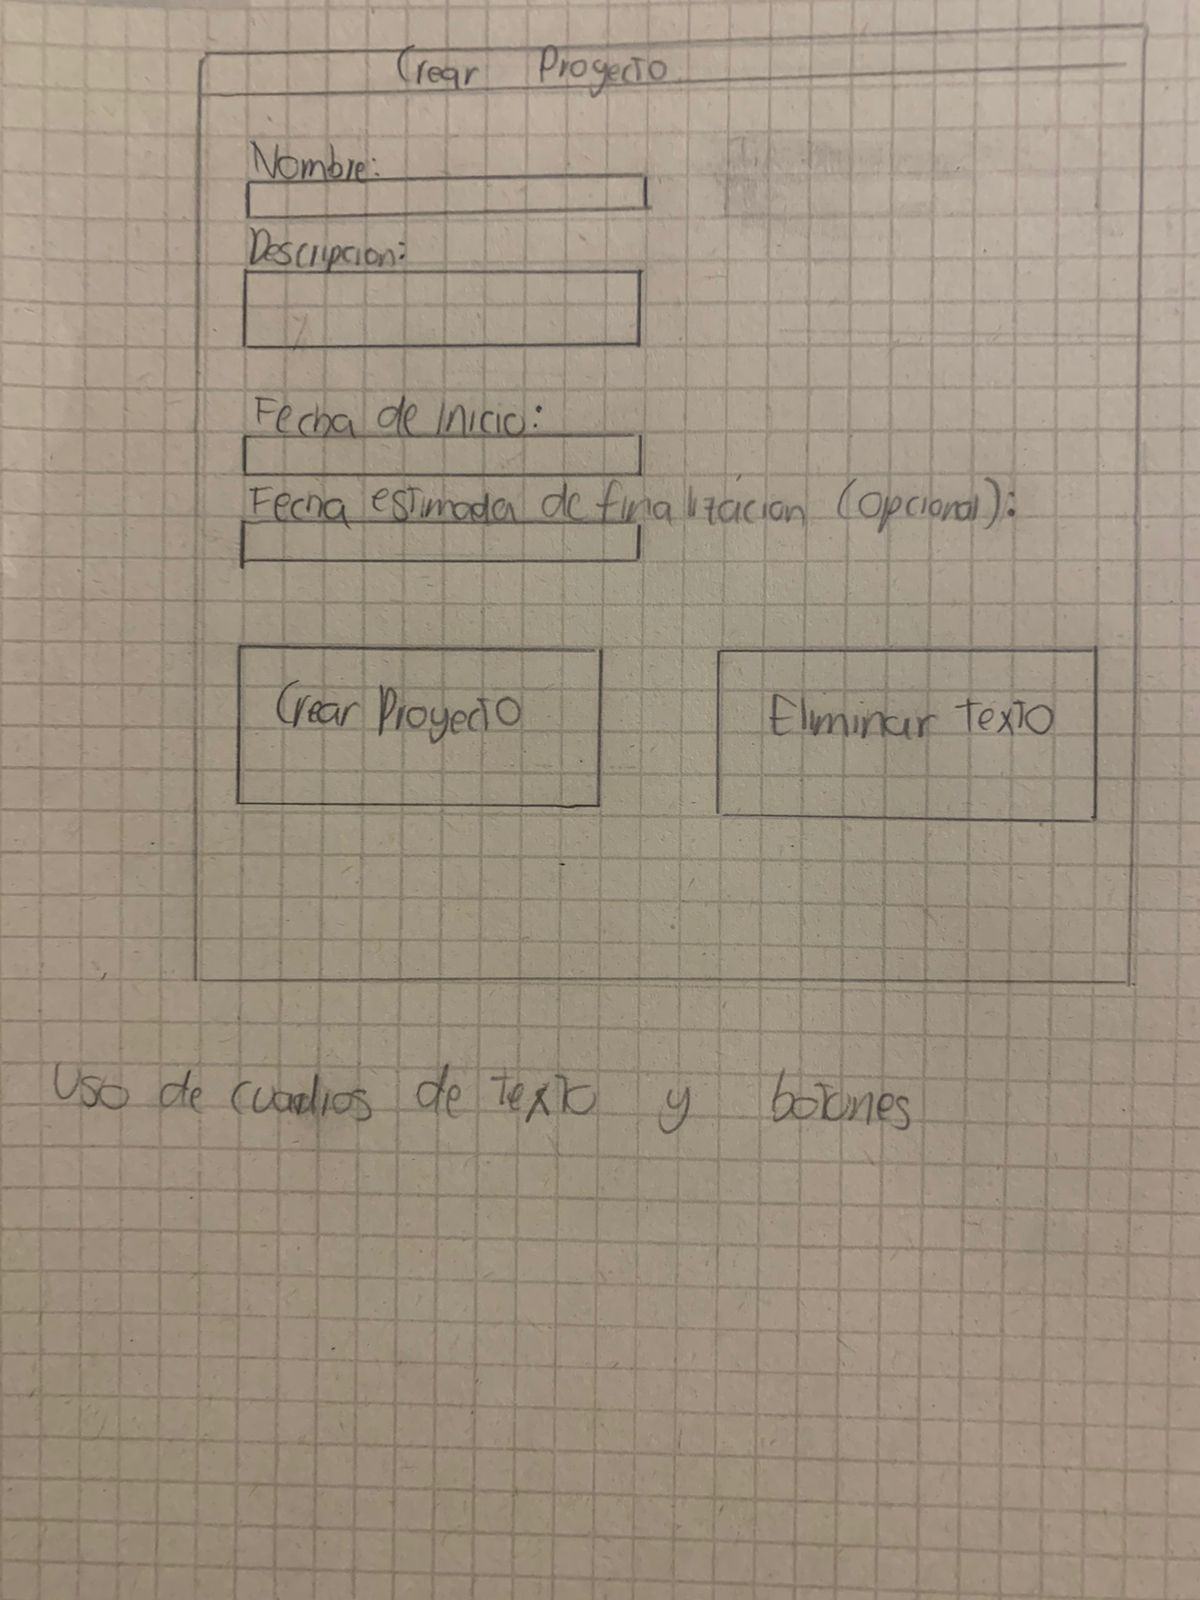 Crear Proyecto
Nombre:
Descripcion:
Fecha de inicio:
Fecha estimada de finalización (opcional):
Crear Proyecto
Eliminar texto
Uso de cuadros de texto y botones